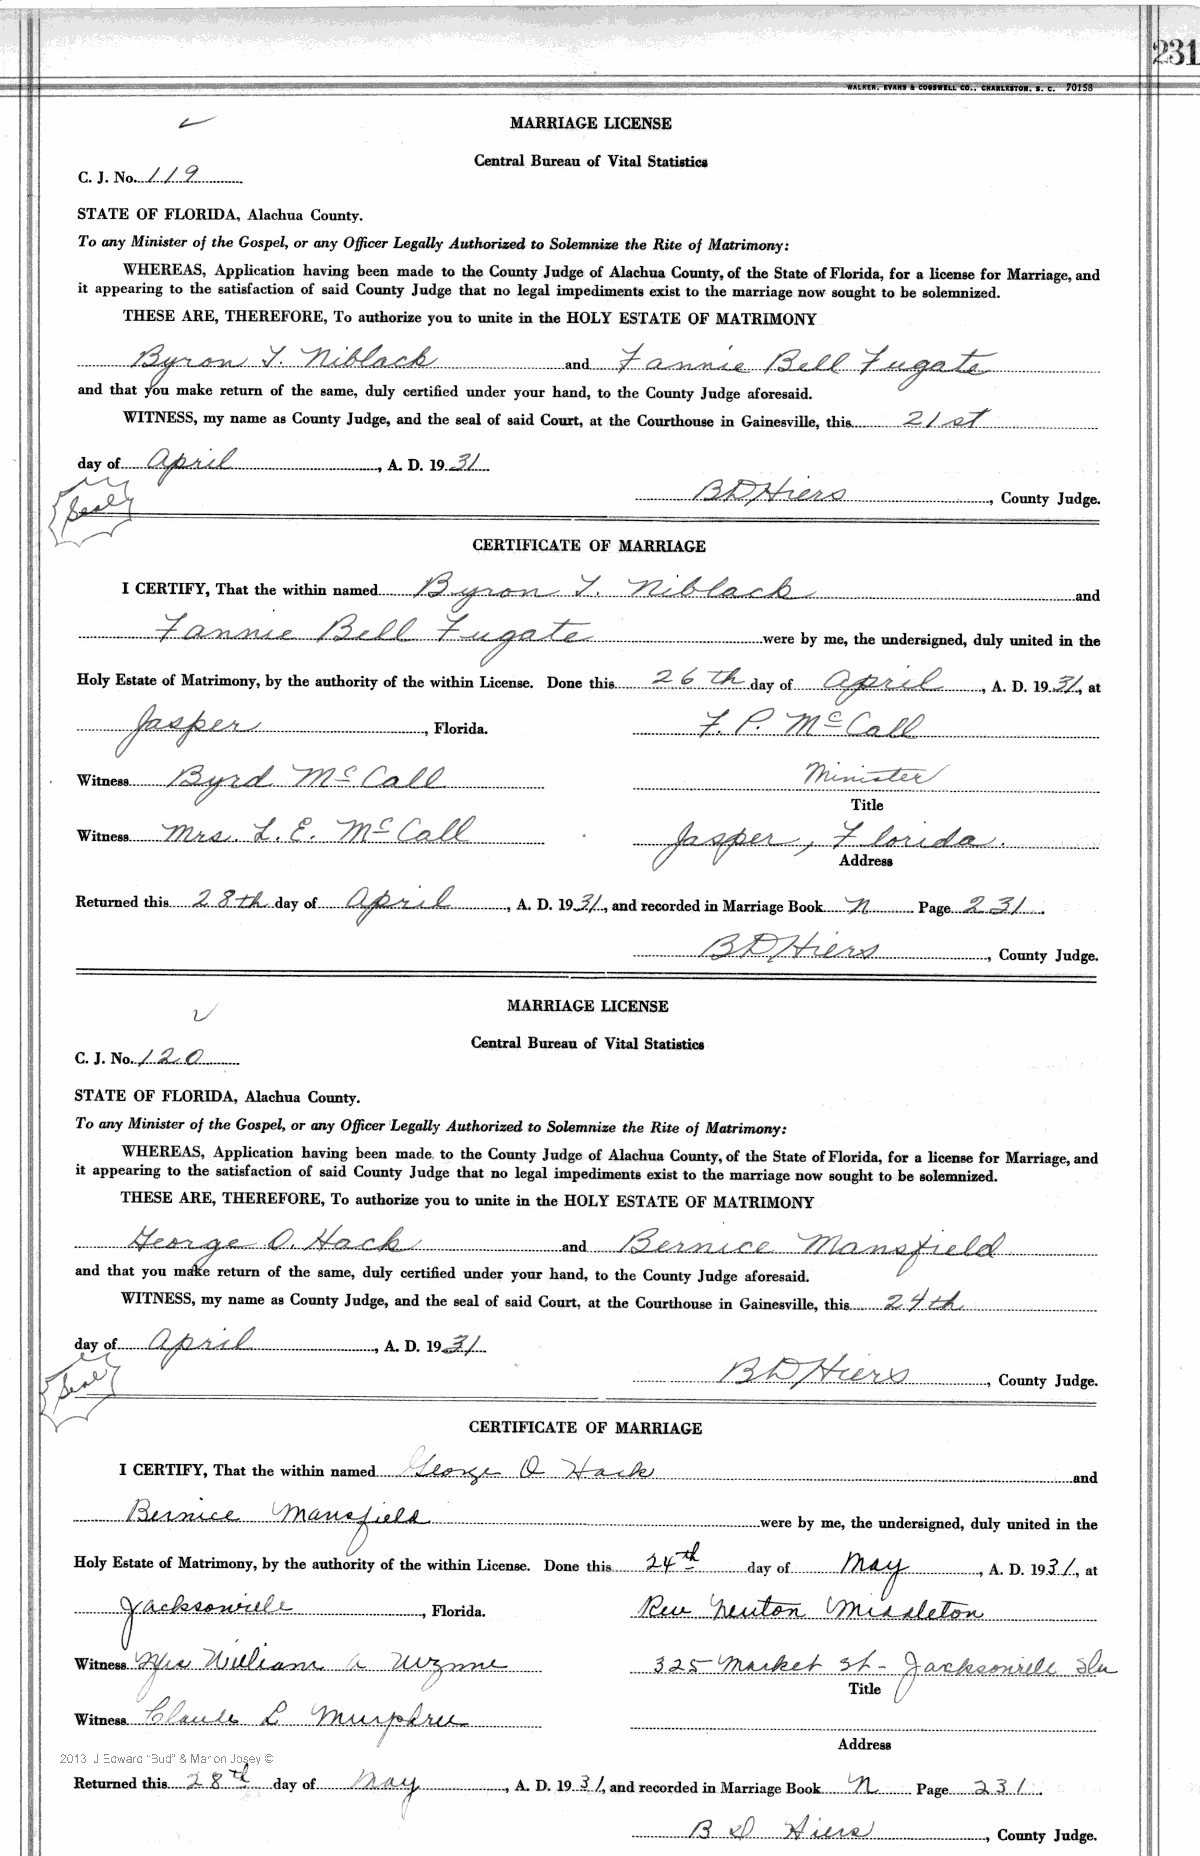 231
WALKER, EVANS & COGSWELL CO., CHARLESTON, S. C. 70158
MARRIAGE LICENSE
Central Bureau of Vital Statistics
C. J. No. 119
STATE OF FLORIDA, Alachua County.
To any Minister of the Gospel, or any Officer Legally Authorized to Solemnize the Rite of Matrimony:
WHEREAS, Application having been made to the County Judge of Alachua County, of the State of Florida, for a license for Marriage, and
it appearing to the satisfaction of said County Judge that no legal impediments exist to the marriage now sought to be solemnized.
THESE ARE, THEREFORE, To authorize you to unite in the HOLY ESTATE OF MATRIMONY
Byron T. Niblack and Fannie Bell Fugate
and that you make return of the same, duly certified under your hand, to the County Judge aforesaid.
WITNESS, my name as County Judge, and the seal of said Court, at the Courthouse in Gainesville, this 21st
day of April, A. D. 1931
Seal
BD Hiers, County Judge.
CERTIFICATE OF MARRIAGE
I CERTIFY, That the within named Byron T. Niblack and
Fannie Bell Fugate were by me, the undersigned, duly united in the
Holy Estate of Matrimony, by the authority of the within License. Done this 26th day of April, A. D. 1931, at
Jasper, Florida. F. P. McCall
Witness Byrd McCall Minister
Title
Witness Mrs. L. E. McCall Jasper, Florida.
Address
Returned this 28th day of April, A. D. 1931, and recorded in Marriage Book N Page 231.
BD Hiers, County Judge.
MARRIAGE LICENSE
Central Bureau of Vital Statistics
C. J. No. 120
STATE OF FLORIDA, Alachua County.
To any Minister of the Gospel, or any Officer Legally Authorized to Solemnize the Rite of Matrimony:
WHEREAS, Application having been made to the County Judge of Alachua County, of the State of Florida, for a license for Marriage, and
it appearing to the satisfaction of said County Judge that no legal impediments exist to the marriage now sought to be solemnized.
THESE ARE, THEREFORE, To authorize you to unite in the HOLY ESTATE OF MATRIMONY
George O. Hack and Bernice Mansfield
and that you make return of the same, duly certified under your hand, to the County Judge aforesaid.
WITNESS, my name as County Judge, and the seal of said Court, at the Courthouse in Gainesville, this 24th
day of April, A. D. 1931
Seal
BD Hiers, County Judge.
CERTIFICATE OF MARRIAGE
I CERTIFY, That the within named George O Hack and
Bernice Mansfield were by me, the undersigned, duly united in the
Holy Estate of Matrimony, by the authority of the within License. Done this 24th day of May, A. D. 1931, at
Jacksonville, Florida. Rev Newton Middleton
Witness Mrs William A 325 Market St- Jacksonville Fla
Title
Witness Claude L Murphree
Address
2013 J Edward "Bud" & Marion Josey ©
Returned this 28th day of May, A. D. 1931, and recorded in Marriage Book N Page 231.
B D Hiers, County Judge.